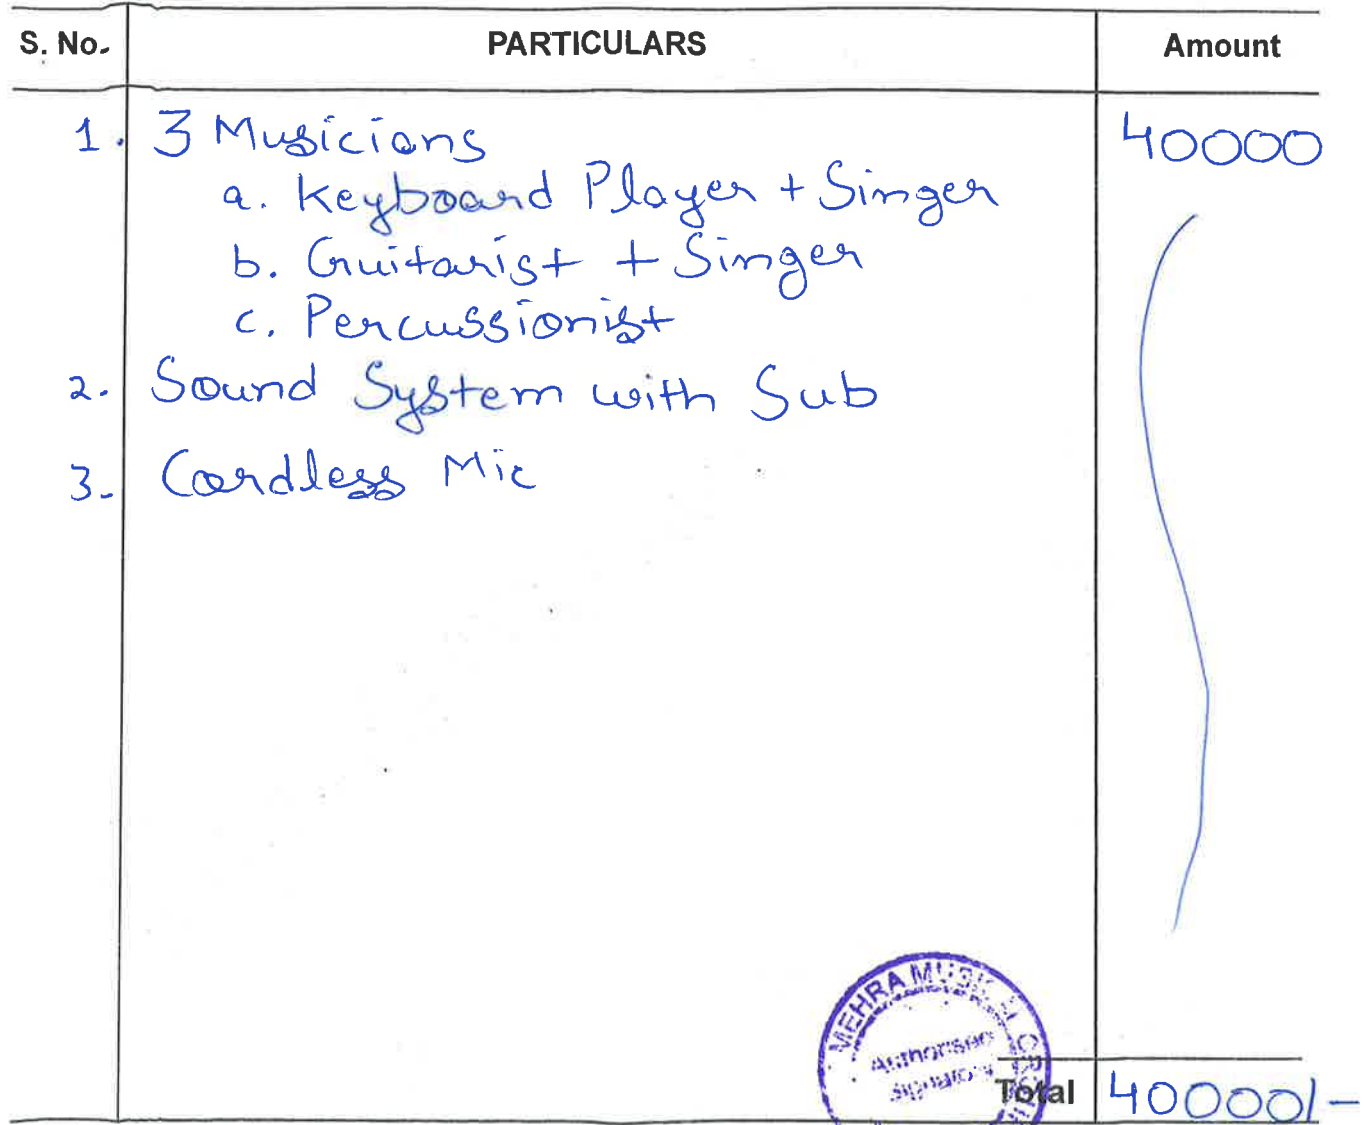 S. No. PARTICULARS Amount
1. 3 Musicians 40000
a. Keyboard Player + Singer
b. Guitarist + Singer
c. Percussionist
2. Sound System with Sub
3. Cordless Mic
MEHRA MUSIC
Authorised
Signatory
Total 40000/-